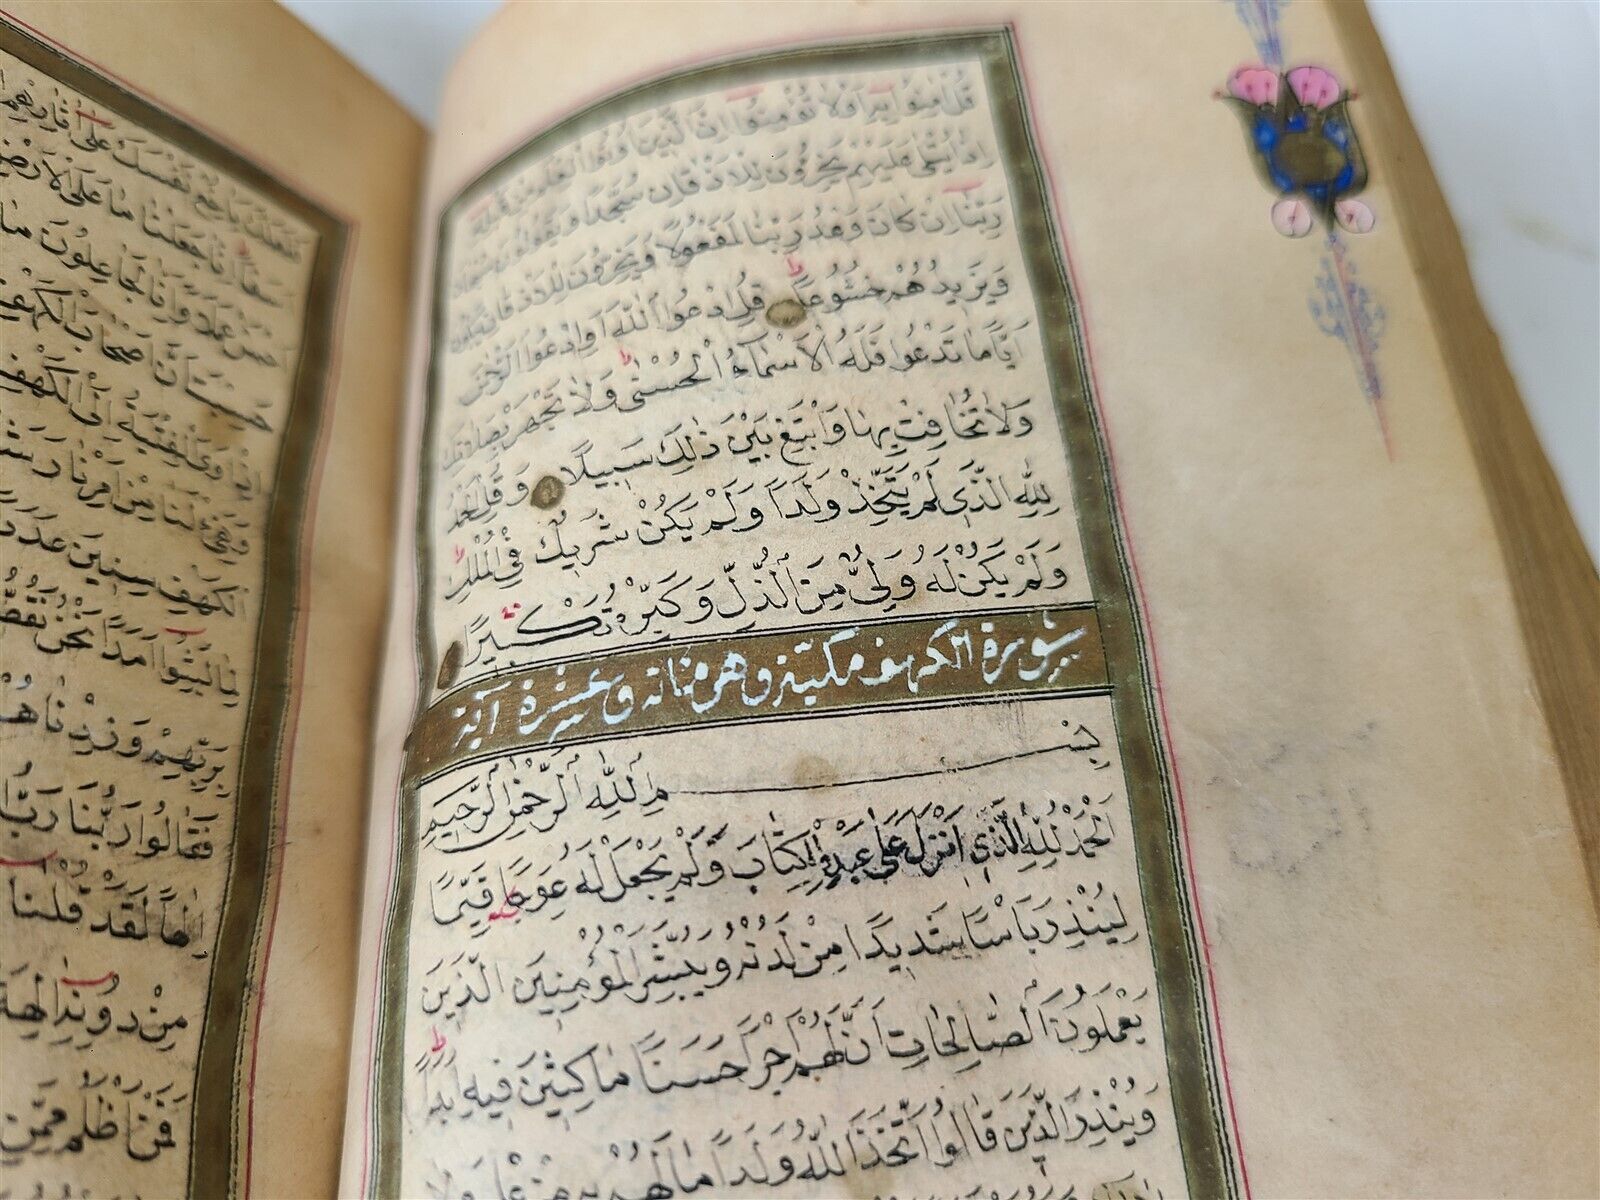 قُلْ اٰمِنُوا بِهِ اَوْلَا تُؤْمِنُوا اِنَّ الَّذِينَ اُوتُوا الْعِلْمَ مِنْ قَبْلِهِ
اِذَا يُتْلٰى عَلَيْهِمْ يَخِرُّونَ لِلْاَذْقَانِ سُجَّدًا وَيَقُولُونَ سُبْحَانَ
رَبِّنَا اِنْ كَانَ وَعْدُ رَبِّنَا لَمَفْعُولًا وَيَخِرُّونَ لِلْاَذْقَانِ يَبْكُونَ
وَيَزِيدُهُمْ خُشُوعًا قُلِ ادْعُوا اللّٰهَ اَوِ ادْعُوا الرَّحْمٰنَ
اَيًّامَا تَدْعُوا فَلَهُ الْاَسْمَاءُ الْحُسْنٰى وَلَا تَجْهَرْ بِصَلَاتِكَ
وَلَا تُخَافِتْ بِهَا وَابْتَغِ بَيْنَ ذٰلِكَ سَبِيلًا وَقُلِ الْحَمْدُ
لِلّٰهِ الَّذِي لَمْ يَتَّخِذْ وَلَدًا وَلَمْ يَكُنْ شَرِيكٌ فِي الْمُلْكِ
وَلَمْ يَكُنْ لَهُ وَلِيٌّ مِنَ الذُّلِّ وَكَبِّرْهُ تَكْبِيرًا
سورة الكهف مكية وهى مائة وعشرة آية
بِسْمِ اللّٰهِ الرَّحْمٰنِ الرَّحِيمِ
اَلْحَمْدُ لِلّٰهِ الَّذِي اَنْزَلَ عَلٰى عَبْدِهِ الْكِتَابَ وَلَمْ يَجْعَلْ لَهُ عِوَجًا قَيِّمًا
لِيُنْذِرَ بَاْسًا شَدِيدًا مِنْ لَدُنْهُ وَيُبَشِّرَ الْمُؤْمِنِينَ الَّذِينَ
يَعْمَلُونَ الصَّالِحَاتِ اَنَّ لَهُمْ اَجْرًا حَسَنًا مَاكِثِينَ فِيهِ اَبَدًا
وَيُنْذِرَ الَّذِينَ قَالُوا اتَّخَذَ اللّٰهُ وَلَدًا مَا لَهُمْ بِهِ مِنْ عِلْمٍ وَلَا
فَلَعَلَّكَ بَاخِعٌ نَفْسَكَ عَلٰى اٰثَارِهِمْ
اَسَفًا اِنَّا جَعَلْنَا مَا عَلَى الْاَرْضِ
اَحْسَنُ عَمَلًا وَاِنَّا لَجَاعِلُونَ مَا
حَسِبْتَ اَنَّ اَصْحَابَ الْكَهْفِ
اِذْ اَوَى الْفِتْيَةُ اِلَى الْكَهْفِ
وَهَيِّئْ لَنَا مِنْ اَمْرِنَا رَشَدًا
الْكَهْفِ سِنِينَ عَدَدًا
لَبِثُوا اَمَدًا نَحْنُ نَقُصُّ
بِرَبِّهِمْ وَزِدْنَاهُمْ
فَقَالُوا رَبُّنَا رَبُّ
اِلٰهًا لَقَدْ قُلْنَا
مِنْ دُونِهِ اٰلِهَةً
فَمَنْ اَظْلَمُ مِمَّنِ